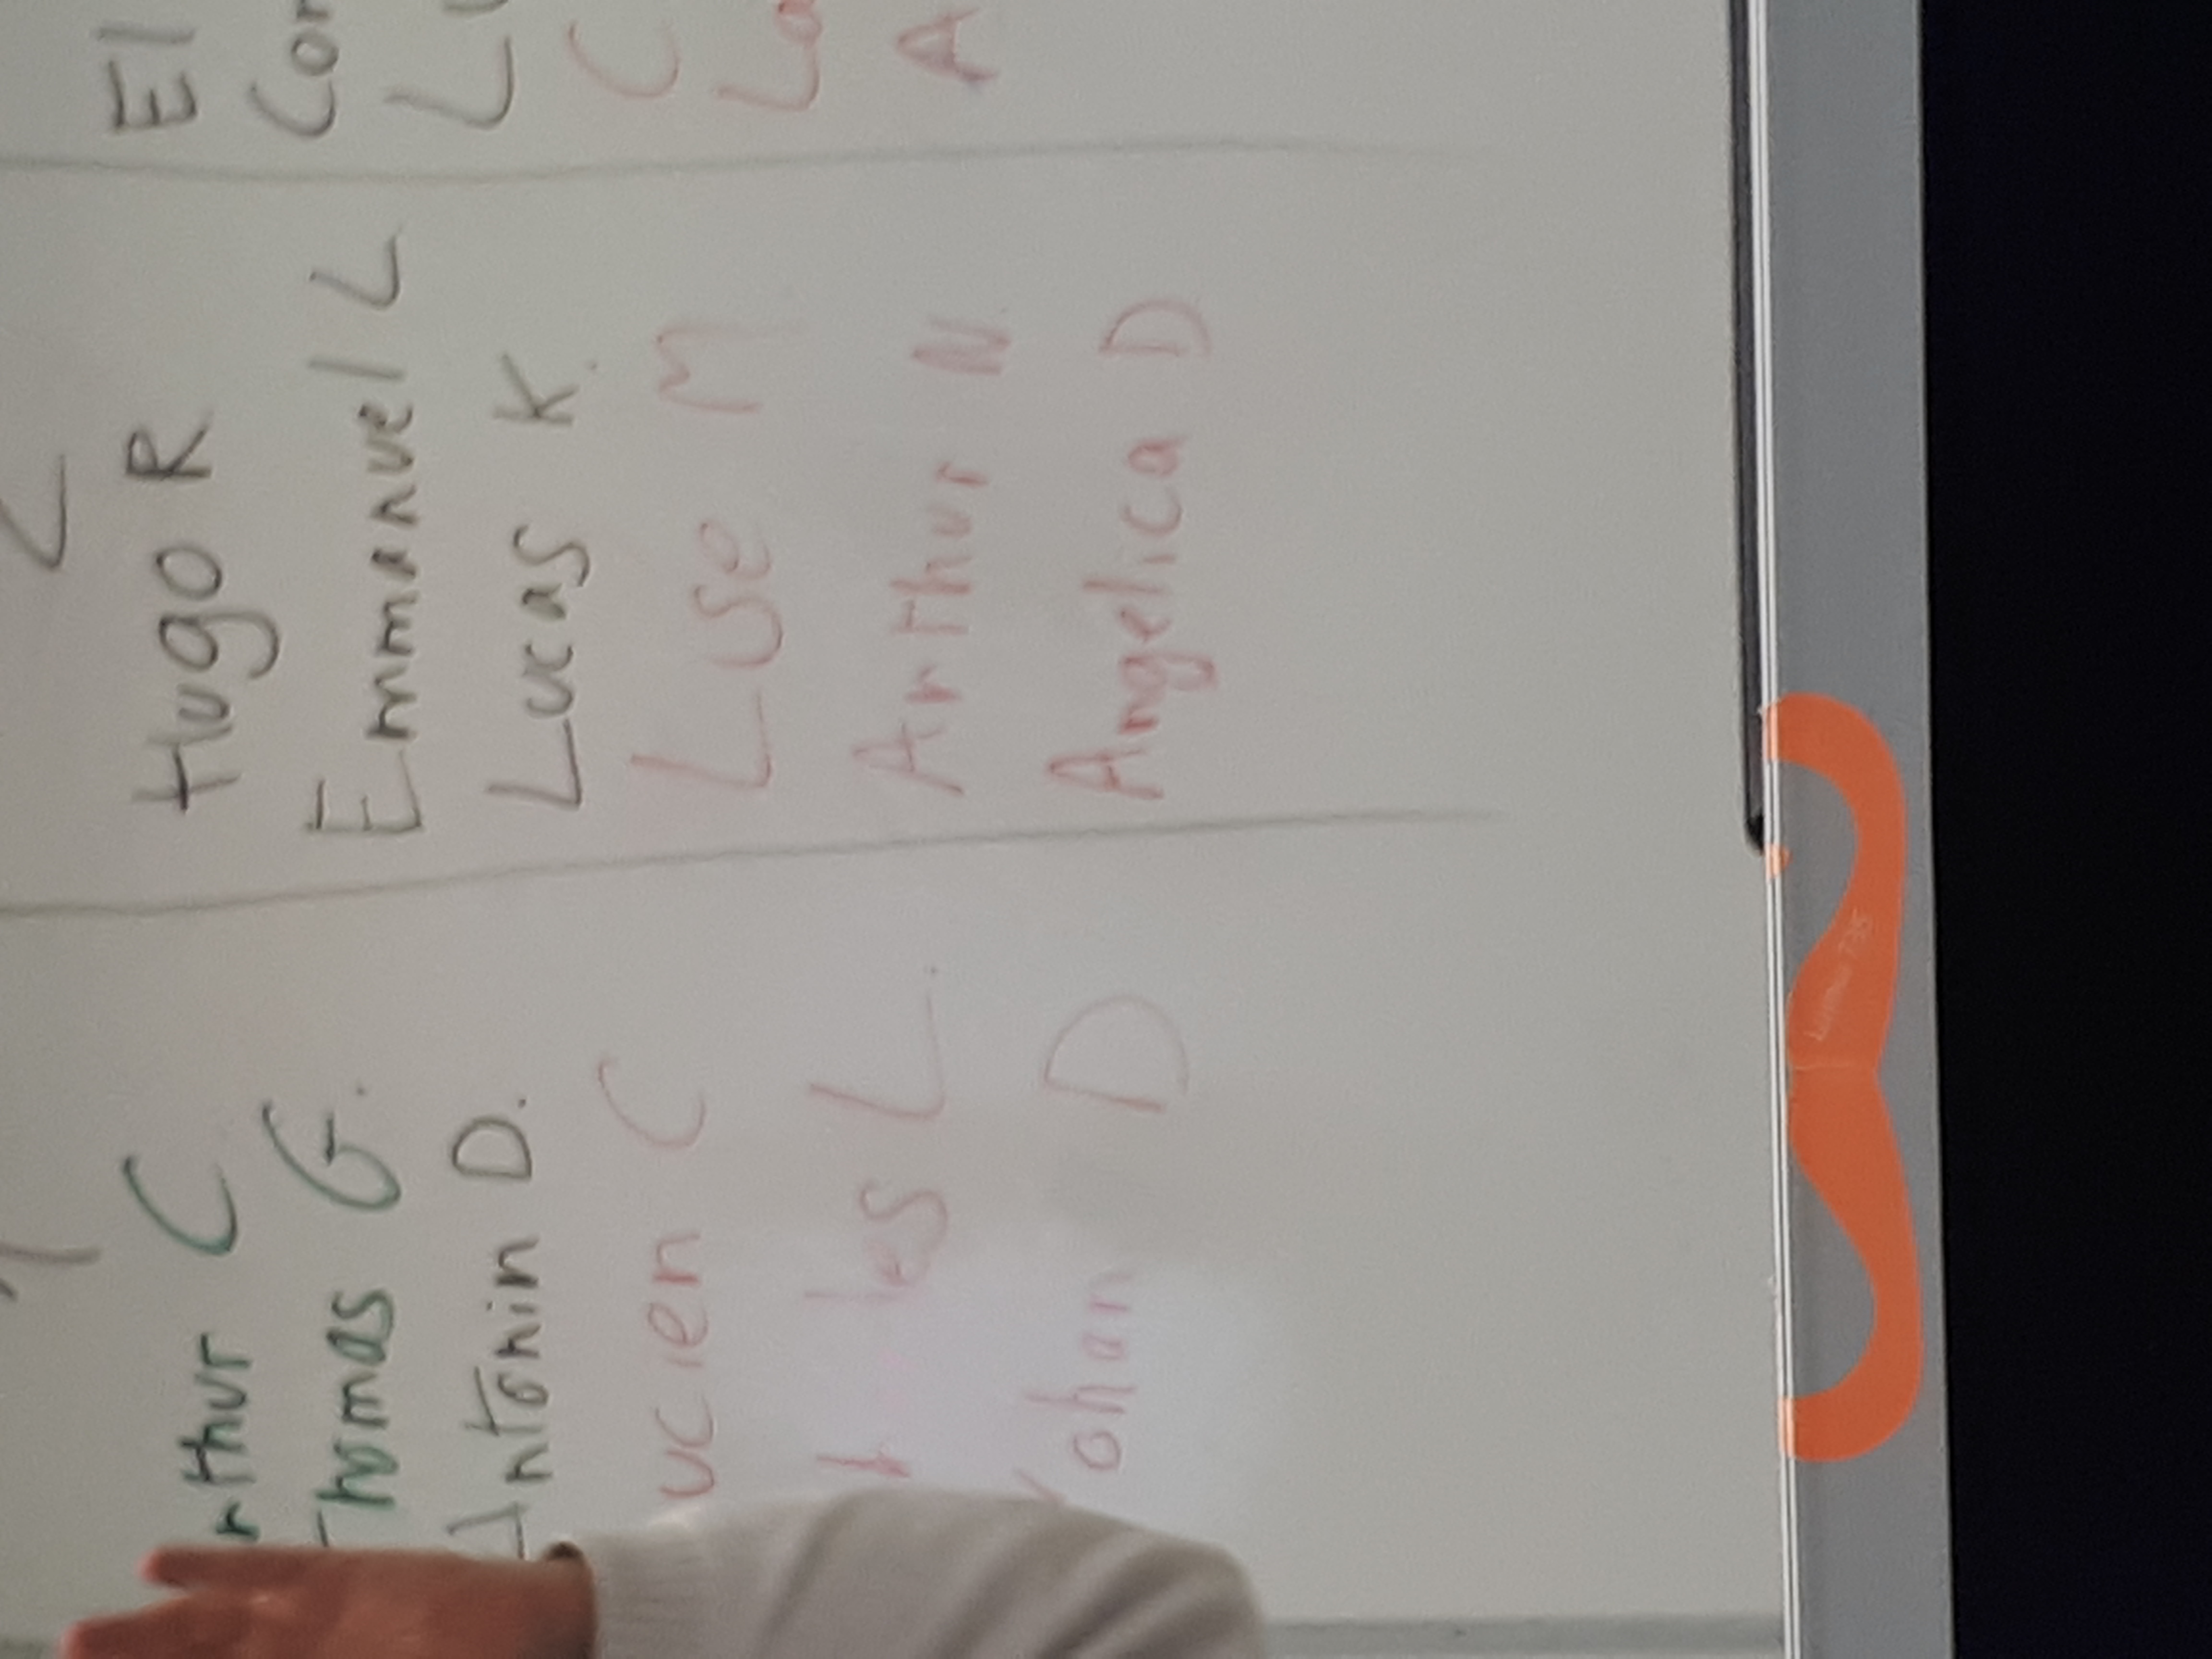 Arthur C
Thomas G.
Antonin D.
Lucien C
les L.
Yohan D
2
Hugo R
Emmanuel L
Lucas K.
Luse M
Arthur N
Angelica D
El
Cor
C
A